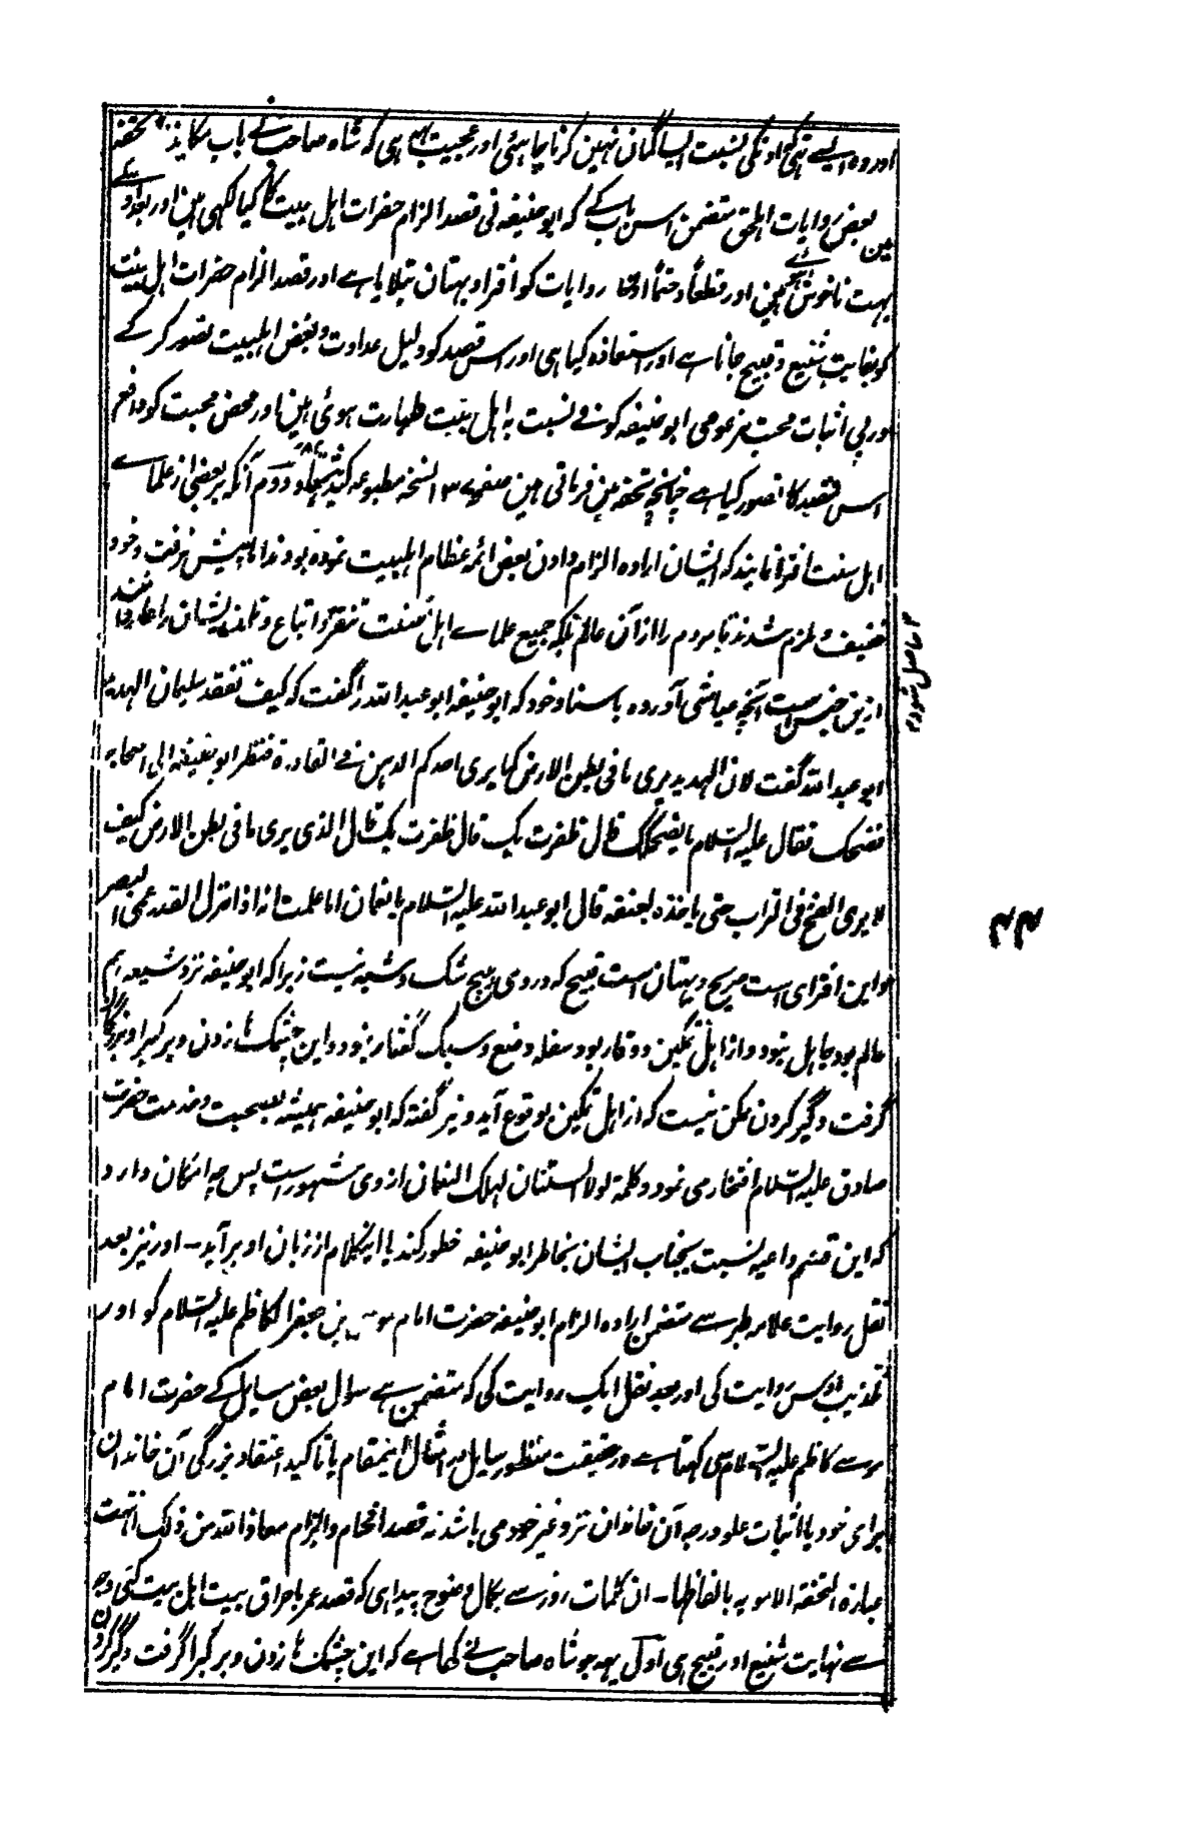 اور وہ ایسے تہی کہ اونکی نسبت ایسا گمان نہین کرنا چاہئی اور عجیب یہ ہی کہ شاہ صاحب نے باب مکاید تحفہ
مین بعض روایات متضمن اس بات کے کہ ابو حنیفہ نی قصد الزام حضرات اہل بیت کا کیا لکہی ہین اور بعد اوسکے
بہت ناخوش ہین اور قطعاً و حتماً ان روایات کو افترا و بہتان بتلایا ہے اور قصد الزام حضرات اہل بیت
کو بغایت شنیع و قبیح جانا ہے اور استعاذہ کیا ہی اور اس قصد کو دلیل عداوت و بغض اہلبیت تصور کر کے
درپی اثبات محبت مزعومی ابو حنیفہ کوفے نسبت بہ اہل بیت طہارت ہوئی ہین اور محض محبت کو دافع
اس قصد کا تصور کیا ہے چنانچہ تحفہ مین فرماتی ہین صفحہ نسخہ مطبوعہ کید دوم آنکہ بر بعضی از علماے
اہل سنت افترا نمایند کہ ایشان ارادہ الزام دادن بعض ائمہ عظام اہلبیت نموده بودند اما پیش نرفت و خود
خفیف و ملزم شدند تا مردم را از آن عالم بلکہ جمیع علماے اہل سنت تنفر و اتباع و تلمذ ایشان را عار دانند
حاصل شود
ازین جنس است آنچہ عیاشی آورده باسناد خود کہ ابو حنیفہ ابو عبد اللہ را گفت کہ کیف تفقد سلیمان الہدہد
ابو عبد اللہ گفت لان الہدہد یری ما فی بطن الارض کما یری احدکم الدہن فے القارورة فنظر ابو حنیفہ الی اصحابہ
فضحک فقال علیہ السلام ما یضحکک قال ظفرت بک قال ظفرت بک قال الذی یری ما فی بطن الارض کیف
لا یری الفخ فی التراب حتی یاخذہ بعنقہ قال ابو عبد اللہ علیہ السلام یا نعمان اما علمت انہ اذا نزل القدر عمی البصر
و این افترای است صریح و بہتان است قبیح کہ در وی ہیچ شک و شبہ نیست زیرا کہ ابو حنیفہ نزد شیعہ ہم
عالم بود جاہل نبود و از اہل تمکین و وقار بود سفلہ وضع و سبک گفتار نبود و این چشمک ہا زدن و بر کبرا و بزرگان
گرفت و گیر کردن ممکن نیست کہ از اہل تمکین بوقوع آید و نیز گفتہ کہ ابو حنیفہ ہمیشہ بصحبت و خدمت حضرت
صادق علیہ السلام افتخار می نمود و کلمہ لولا السنتان لہلک النعمان از وی مشہور است پس چہ امکان دارد
کہ این قسم داعیہ نسبت بجناب ایشان بخاطر ابو حنیفہ خطور کند یا اینکلام از زبان او برآید ۔ اور نیز بعد
نقل روایت علامہ طبرسے متضمن ارادہ الزام ابو حنیفہ حضرت امام موسے بن جعفر الکاظم علیہ السلام کو اور
تکذیب اوس روایت کی اور بعد نقل ایک روایت کی کہ متضمن ہے سوال بعض مسایل کے حضرت امام
موسے کاظم علیہ السلام سی کہتا ہے در حقیقت منظور سایل بہ امثال اینمقام یا تاکید اعتقاد بزرگی آن خاندان
برای خود یا اثبات علو درجہ آن خاندان نزد غیر خود می باشد نہ قصد افحام و الزام معاذ اللہ من ذلک انتہت
عبارة التحفة الامویہ بالفاظہا ۔ ان کلمات روز سے بکمال وضوح پیدا ہی کہ قصد عمر باحراق بیت اہل بیت کئی وجہ
سے نہایت شنیع اور قبیح ہی اول یہہ جو شاہ صاحب نے کہا ہے کہ این چشمک ہا زدن و بر کبرا گرفت و گیر کردن